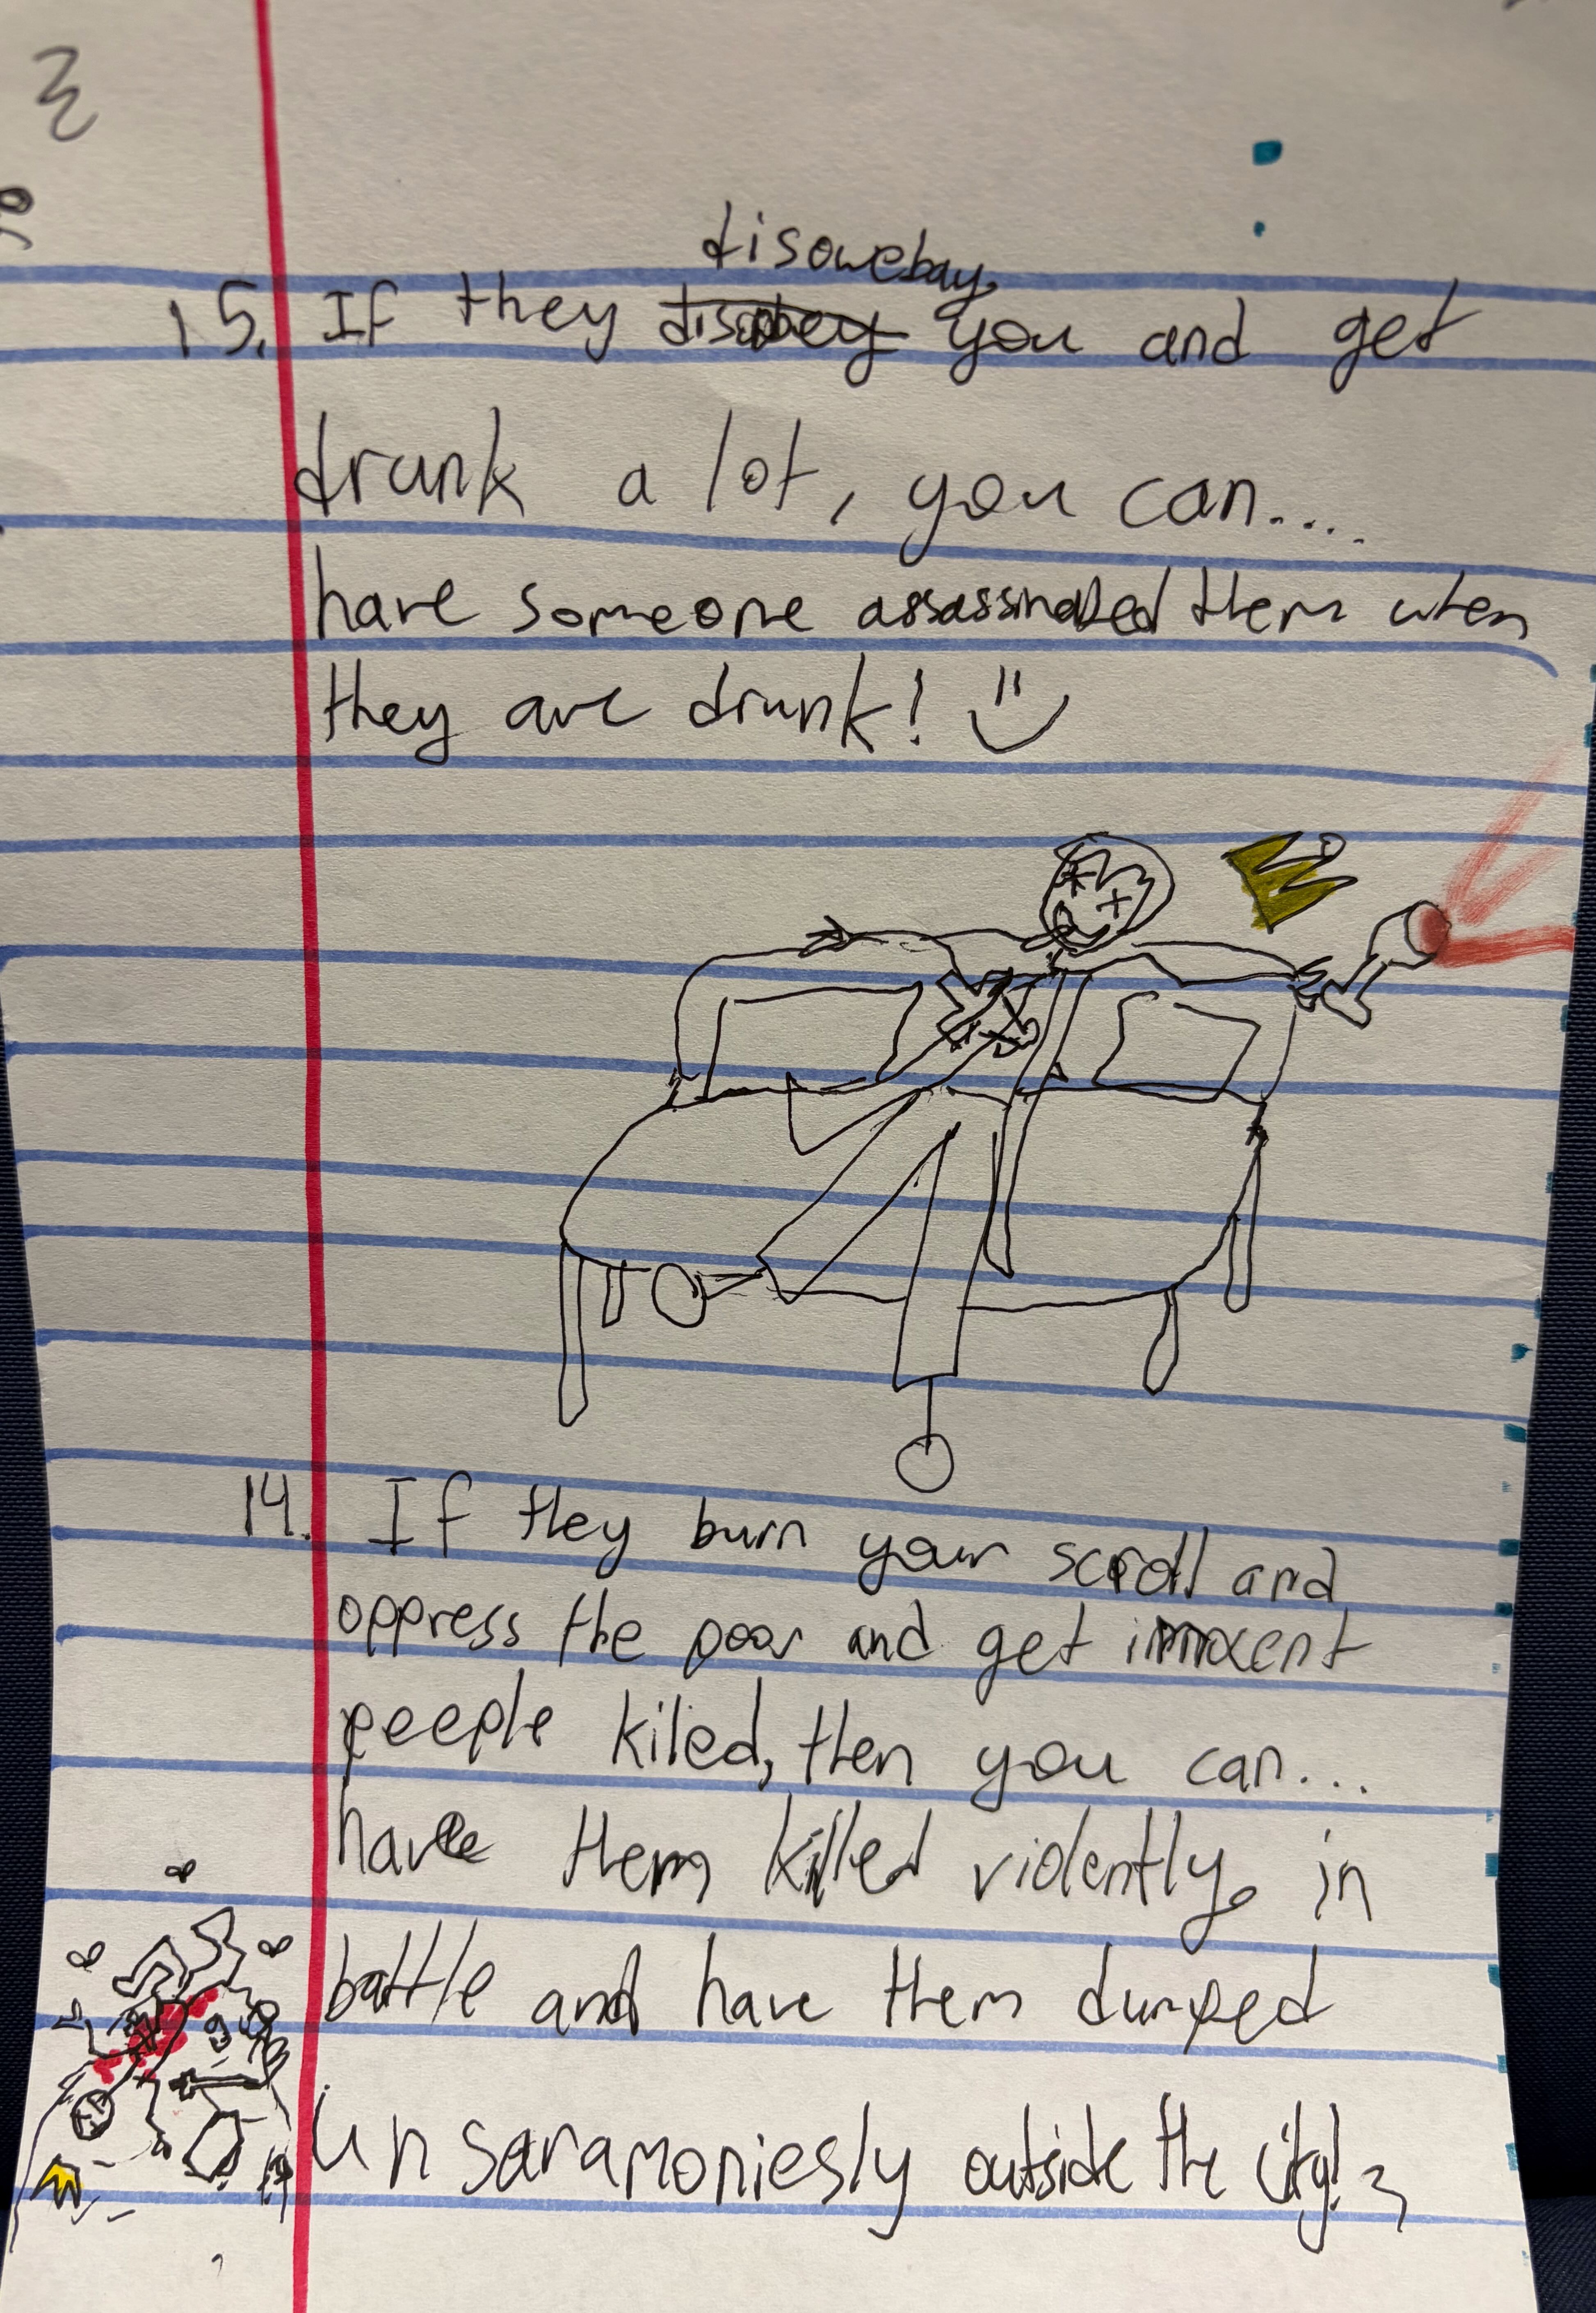 disowebay
15. If they disobey you and get
drunk a lot, you can....
have someone assassinated them when
they are drunk! :)
14. If they burn your scroll and
oppress the poor and get innocent
peeple killed, then you can...
have them killed violently in
battle and have them dumped
unsaramoniesly outside the city!